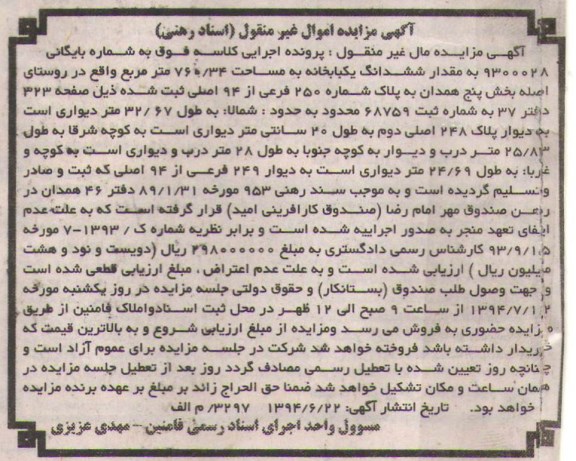 آگهی مزایده اموال غیر منقول (اسناد رهنی)
آگهی مزایده مال غیر منقول : پرونده اجرایی کلاسه فوق به شماره بایگانی
۹۳۰۰۰۲۸ به مقدار ششدانگ یکبابخانه به مساحت ۷۶۰/۳۴ متر مربع واقع در روستای
اصله بخش پنج همدان به پلاک شماره ۲۵۰ فرعی از ۹۴ اصلی ثبت شده ذیل صفحه ۳۲۳
دفتر ۳۷ به شماره ثبت ۶۸۷۵۹ محدود به حدود : شمالا: به طول ۳۲/۶۷ متر دیواری است
به دیوار پلاک ۲۴۸ اصلی دوم به طول ۲۰ سانتی متر دیواری است به کوچه شرقا به طول
۲۵/۸۳ متر درب و دیوار به کوچه جنوبا به طول ۲۸ متر درب و دیواری است به کوچه و
غربا: به طول ۲۴/۶۹ متر دیواری است به دیوار ۲۴۹ فرعی از ۹۴ اصلی که ثبت و صادر
وتسلیم گردیده است و به موجب سند رهنی ۹۵۳ مورخه ۸۹/۱/۳۱ دفتر ۴۶ همدان در
رهن صندوق مهر امام رضا (صندوق کارافرینی امید) قرار گرفته است که به علت عدم
ایفای تعهد منجر به صدور اجراییه شده است و برابر نظریه شماره ک / ۱۳۹۳-۷ مورخه
۹۳/۹/۱۵ کارشناس رسمی دادگستری به مبلغ ۲۹۸۰۰۰۰۰۰ ریال (دویست و نود و هشت
میلیون ریال ) ارزیابی شده است و به علت عدم اعتراض ، مبلغ ارزیابی قطعی شده است
و جهت وصول طلب صندوق (بستانکار) و حقوق دولتی جلسه مزایده در روز یکشنبه مورخه
۱۳۹۴/۷/۱۲ از ساعت ۹ صبح الی ۱۲ ظهر در محل ثبت اسنادواملاک فامنین از طریق
مزایده حضوری به فروش می رسد ومزایده از مبلغ ارزیابی شروع و به بالاترین قیمت که
خریدار داشته باشد فروخته خواهد شد شرکت در جلسه مزایده برای عموم آزاد است و
چنانچه روز تعیین شده با تعطیل رسمی مصادف گردد روز بعد از تعطیل جلسه مزایده در
همان ساعت و مکان تشکیل خواهد شد ضمنا حق الحراج زائد بر مبلغ بر عهده برنده مزایده
خواهد بود. تاریخ انتشار آگهی: ۱۳۹۴/۶/۲۲ ۳۲۹۷/م الف
مسوول واحد اجرای اسناد رسمی فامنین - مهدی عزیزی